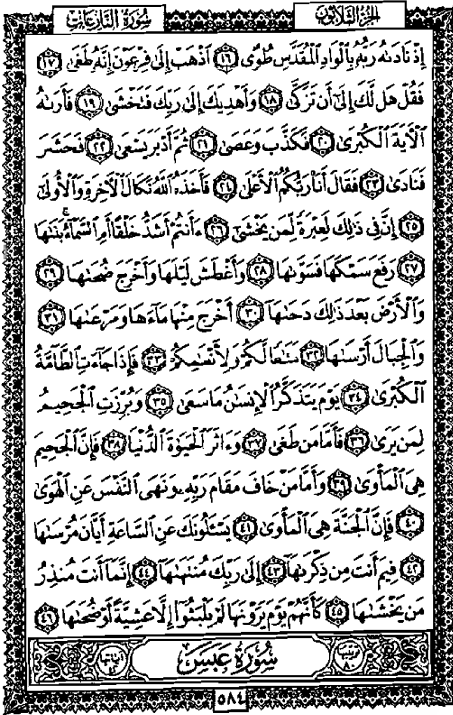 الجزء الثلاثون سورة النازعات
إِذْ نَادَىٰهُ رَبُّهُۥ بِٱلْوَادِ ٱلْمُقَدَّسِ طُوًى ١٦ ٱذْهَبْ إِلَىٰ فِرْعَوْنَ إِنَّهُۥ طَغَىٰ ١٧
فَقُلْ هَل لَّكَ إِلَىٰٓ أَن تَزَكَّىٰ ١٨ وَأَهْدِيَكَ إِلَىٰ رَبِّكَ فَتَخْشَىٰ ١٩ فَأَرَىٰهُ
ٱلْـَٔايَةَ ٱلْكُبْرَىٰ ٢٠ فَكَذَّبَ وَعَصَىٰ ٢١ ثُمَّ أَدْبَرَ يَسْعَىٰ ٢٢ فَحَشَرَ
فَنَادَىٰ ٢٣ فَقَالَ أَنَا۠ رَبُّكُمُ ٱلْأَعْلَىٰ ٢٤ فَأَخَذَهُ ٱللَّهُ نَكَالَ ٱلْـَٔاخِرَةِ وَٱلْأُولَىٰٓ
٢٥ إِنَّ فِى ذَٰلِكَ لَعِبْرَةً لِّمَن يَخْشَىٰٓ ٢٦ ءَأَنتُمْ أَشَدُّ خَلْقًا أَمِ ٱلسَّمَآءُ ۚ بَنَىٰهَا
٢٧ رَفَعَ سَمْكَهَا فَسَوَّىٰهَا ٢٨ وَأَغْطَشَ لَيْلَهَا وَأَخْرَجَ ضُحَىٰهَا ٢٩
وَٱلْأَرْضَ بَعْدَ ذَٰلِكَ دَحَىٰهَآ ٣٠ أَخْرَجَ مِنْهَا مَآءَهَا وَمَرْعَىٰهَا ٣١
وَٱلْجِبَالَ أَرْسَىٰهَا ٣٢ مَتَٰعًا لَّكُمْ وَلِأَنْعَٰمِكُمْ ٣٣ فَإِذَا جَآءَتِ ٱلطَّآمَّةُ
ٱلْكُبْرَىٰ ٣٤ يَوْمَ يَتَذَكَّرُ ٱلْإِنسَٰنُ مَا سَعَىٰ ٣٥ وَبُرِّزَتِ ٱلْجَحِيمُ
لِمَن يَرَىٰ ٣٦ فَأَمَّا مَن طَغَىٰ ٣٧ وَءَاثَرَ ٱلْحَيَوٰةَ ٱلدُّنْيَا ٣٨ فَإِنَّ ٱلْجَحِيمَ
هِىَ ٱلْمَأْوَىٰ ٣٩ وَأَمَّا مَنْ خَافَ مَقَامَ رَبِّهِۦ وَنَهَى ٱلنَّفْسَ عَنِ ٱلْهَوَىٰ
٤٠ فَإِنَّ ٱلْجَنَّةَ هِىَ ٱلْمَأْوَىٰ ٤١ يَسْـَٔلُونَكَ عَنِ ٱلسَّاعَةِ أَيَّانَ مُرْسَىٰهَا
٤٢ فِيمَ أَنتَ مِن ذِكْرَىٰهَآ ٤٣ إِلَىٰ رَبِّكَ مُنتَهَىٰهَآ ٤٤ إِنَّمَآ أَنتَ مُنذِرُ
مَن يَخْشَىٰهَا ٤٥ كَأَنَّهُمْ يَوْمَ يَرَوْنَهَا لَمْ يَلْبَثُوٓا۟ إِلَّا عَشِيَّةً أَوْ ضُحَىٰهَا ٤٦
سورة عبس
٥٨٤